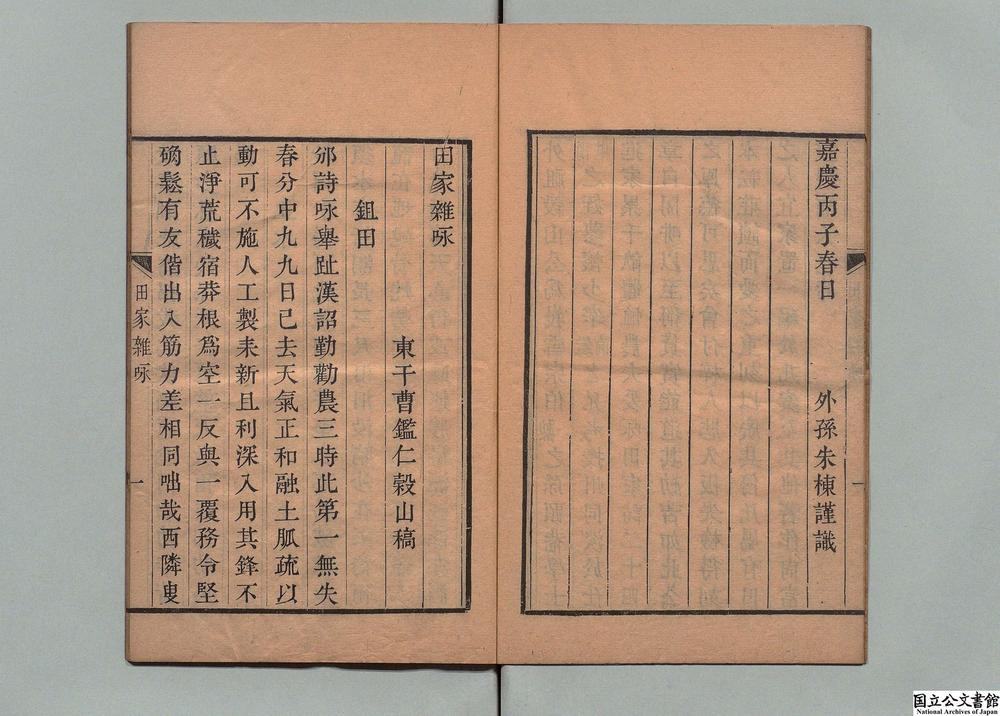 嘉慶丙子春日　外孫朱棟謹識
田家雜咏
東干曹鑑仁榖山稿
鉏田
邠詩咏舉趾漢詔勤勸農三時此第一無失
春分中九九日已去天氣正和融土脈疏以
動可不施人工製耒新且利深入用其鋒不
止淨荒穢宿莽根爲空一反與一覆務令堅
确鬆有友偕出入筋力差相同咄哉西隣叟
田家雜咏
一
国立公文書館
National Archives of Japan